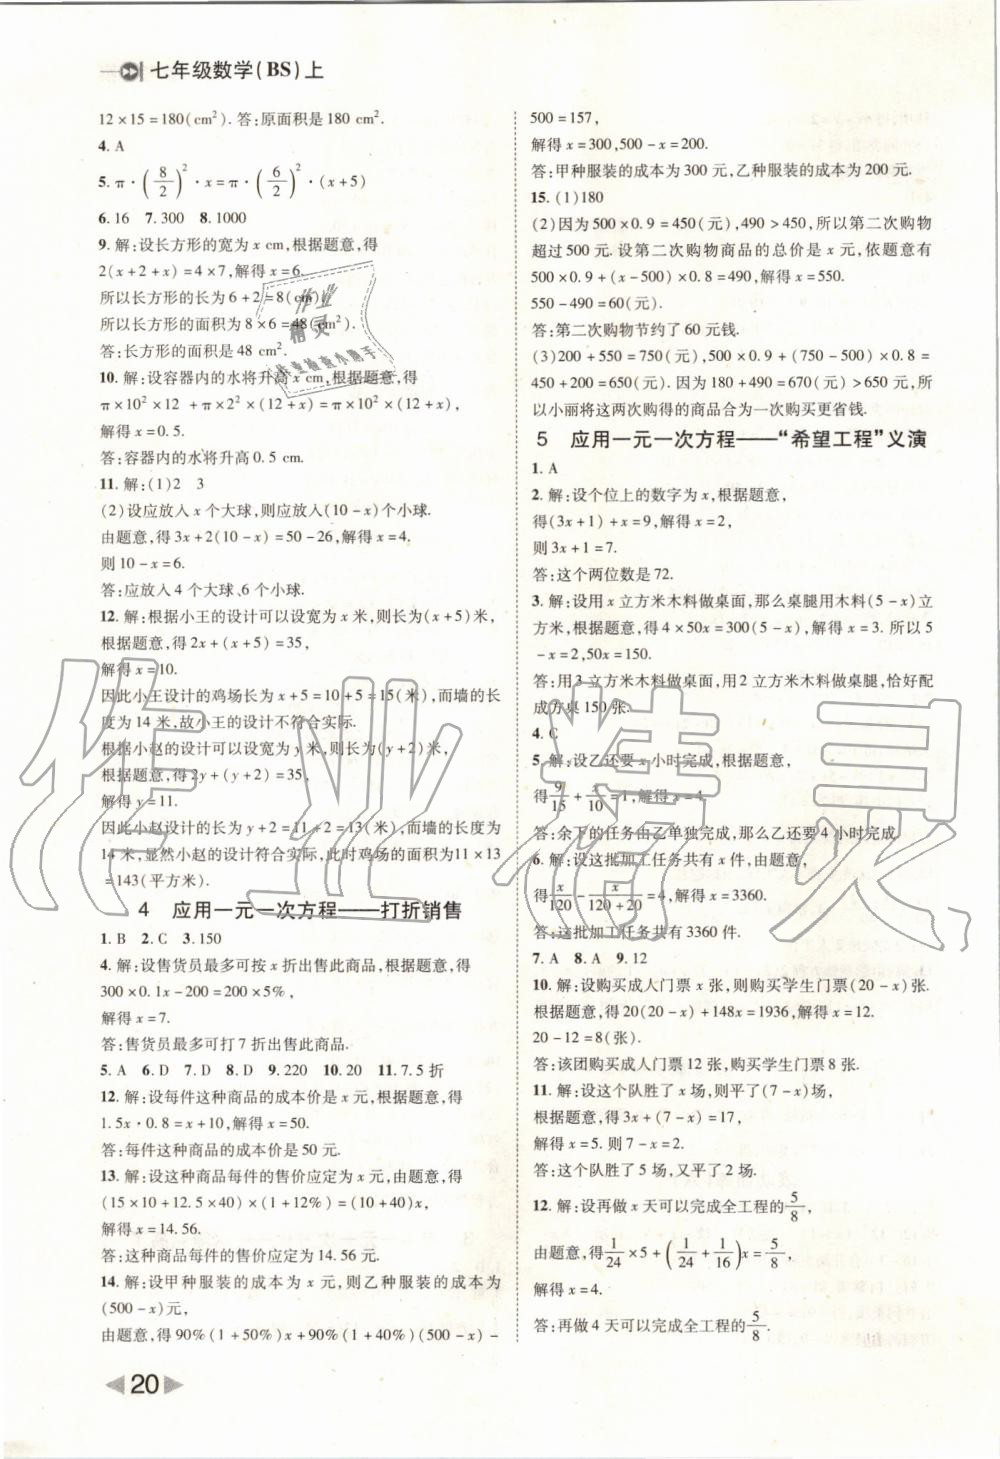 七年级数学(BS)上
12×15=180(cm²). 答:原面积是180 cm².
4. A
5. π·(8/2)²·x=π·(6/2)²·(x+5)
6. 16 7. 300 8. 1000
9. 解:设长方形的宽为x cm,根据题意,得
2(x+2+x)=4×7,解得x=6.
所以长方形的长为6+2=8(cm).
所以长方形的面积为8×6=48(cm²).
答:长方形的面积是48 cm².
10. 解:设容器内的水将升高x cm,根据题意,得
π×10²×12+π×2²×(12+x)=π×10²×(12+x),
解得x=0.5.
答:容器内的水将升高0.5 cm.
11. 解:(1)2 3
(2)设应放入x个大球,则应放入(10-x)个小球.
由题意,得3x+2(10-x)=50-26,解得x=4.
则10-x=6.
答:应放入4个大球、6个小球.
12. 解:根据小王的设计可以设宽为x米,则长为(x+5)米,
根据题意,得2x+(x+5)=35,
解得x=10.
因此小王设计的鸡场长为x+5=10+5=15(米),而墙的长
度为14米,故小王的设计不符合实际.
根据小赵的设计可以设宽为y米,则长为(y+2)米,
根据题意,得2y+(y+2)=35,
解得y=11.
因此小赵设计的长为y+2=11+2=13(米),而墙的长度为
14米,显然小赵的设计符合实际,此时鸡场的面积为11×13
=143(平方米).
4 应用一元一次方程——打折销售
1. B 2. C 3. 150
4. 解:设售货员最多可按x折出售此商品,根据题意,得
300×0.1x-200=200×5%,
解得x=7.
答:售货员最多可打7折出售此商品.
5. A 6. D 7. D 8. D 9. 220 10. 20 11. 7.5折
12. 解:设每件这种商品的成本价是x元,根据题意,得
1.5x·0.8=x+10,解得x=50.
答:每件这种商品的成本价是50元.
13. 解:设这种商品每件的售价应定为x元,由题意,得
(15×10+12.5×40)×(1+12%)=(10+40)x,
解得x=14.56.
答:这种商品每件的售价应定为14.56元.
14. 解:设甲种服装的成本为x元,则乙种服装的成本为
(500-x)元,
由题意,得90%(1+50%)x+90%(1+40%)(500-x)-
20
500=157,
解得x=300,500-x=200.
答:甲种服装的成本为300元,乙种服装的成本为200元.
15. (1)180
(2)因为500×0.9=450(元),490>450,所以第二次购物
超过500元. 设第二次购物商品的总价是x元,依题意有
500×0.9+(x-500)×0.8=490,解得x=550.
550-490=60(元).
答:第二次购物节约了60元钱.
(3)200+550=750(元),500×0.9+(750-500)×0.8=
450+200=650(元). 因为180+490=670(元)>650元,所
以小丽将这两次购得的商品合为一次购买更省钱.
5 应用一元一次方程——“希望工程”义演
1. A
2. 解:设个位上的数字为x,根据题意,
得(3x+1)+x=9,解得x=2,
则3x+1=7.
答:这个两位数是72.
3. 解:设用x立方米木料做桌面,那么桌腿用木料(5-x)立
方米,根据题意,得4×50x=300(5-x),解得x=3. 所以5
-x=2,50x=150.
答:用3立方米木料做桌面,用2立方米木料做桌腿,恰好配
成方桌150张.
4. C
5. 解:设乙还要x小时完成,根据题意,
得9/15+x/10=1,解得x=4.
答:余下的任务由乙单独完成,那么乙还要4小时完成.
6. 解:设这批加工任务共有x件,由题意,
得x/120-x/(120+20)=4,解得x=3360.
答:这批加工任务共有3360件.
7. A 8. A 9. 12
10. 解:设购买成人门票x张,则购买学生门票(20-x)张.
根据题意,得20(20-x)+148x=1936,解得x=12.
20-12=8(张).
答:该团购买成人门票12张,购买学生门票8张.
11. 解:设这个队胜了x场,则平了(7-x)场,
根据题意,得3x+(7-x)=17,
解得x=5. 则7-x=2.
答:这个队胜了5场,又平了2场.
12. 解:设再做x天可以完成全工程的5/8,
由题意,得1/24×5+(1/24+1/16)x=5/8,
解得x=4.
答:再做4天可以完成全工程的5/8.
作业精灵